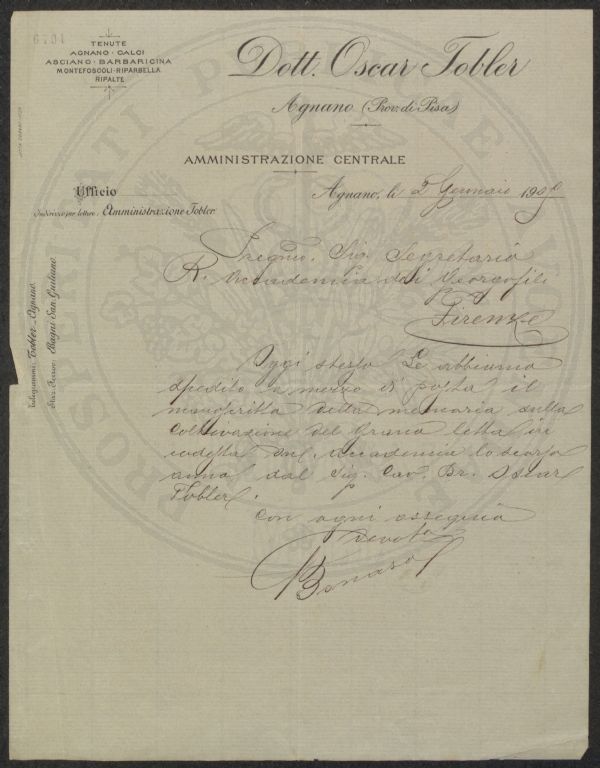 TENUTE
AGNANO · CALCI
ASCIANO · BARBARICINA
MONTEFOSCOLI · RIPARBELLA
RIPALTE
Dott. Oscar Tobler
Agnano (Prov. di Pisa)
AMMINISTRAZIONE CENTRALE
Ufficio
Indirizzo per lettere: Amministrazione Tobler
Agnano, li 2 Gennaio 190
Telegrammi: Tobler-Agnano.
Staz. Ferrov: Bagni San Giuliano.
Sig. Segretario
R. Accademia dei Georgofili
Firenze
Oggi stesso Le abbiamo
spedito a mezzo di posta il
manoscritto della memoria sulla
Coltivazione del Grano letta in
codesta Accademia lo scorso
anno dal Sig. Cav. Dr. Oscar
Tobler.
Con ogni ossequio